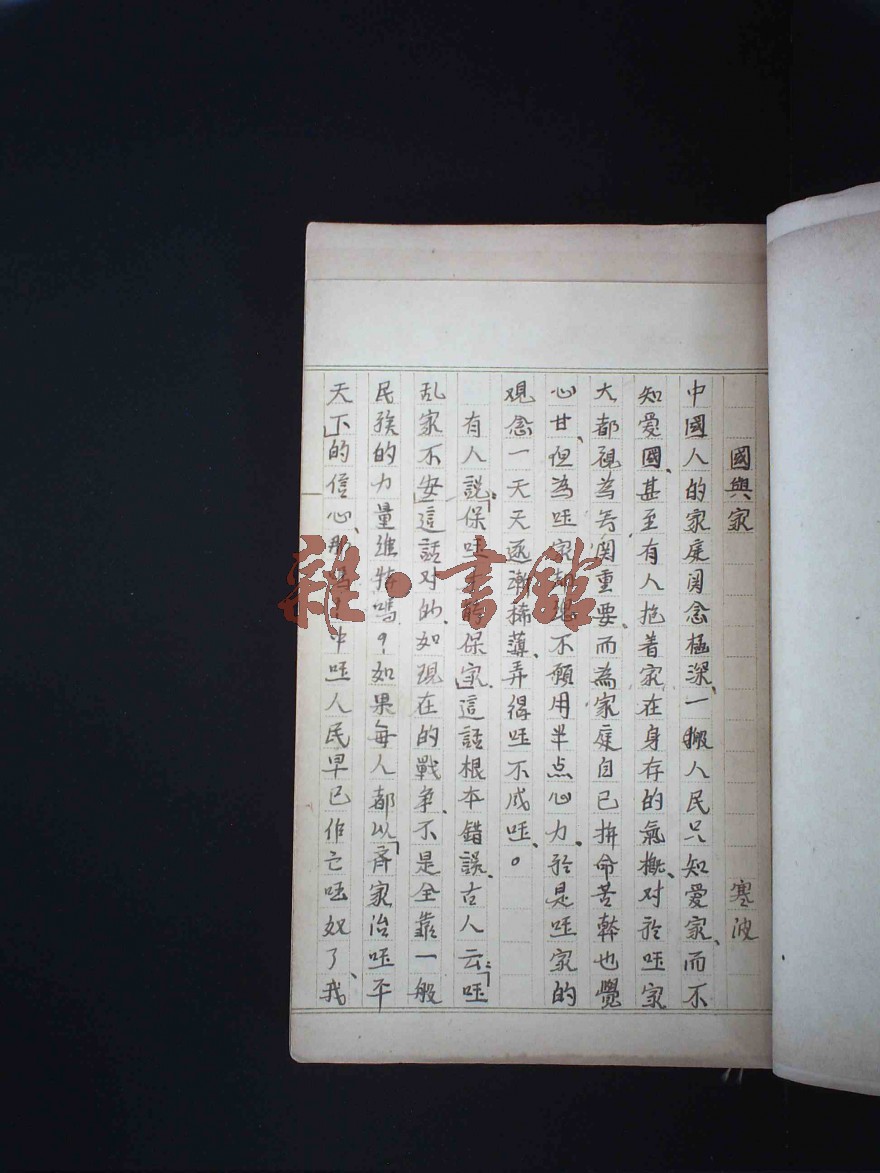 國與家　寒波
中國人的家庭関念極深、一搬人民只知愛家、而不
知愛國、甚至有人抱着家在身存的氣概、对於囯家
大都視為旡関重要、而為家庭自己拚命苦幹也覺
心甘、但為囯家却總不願用半点心力、於是囯家的
观念一天天逐漸稀薄、弄得囯不成囯、。
有人説：「保囯才能保家」、這話根本錯誤、古人云：「囯
乱家不安」這話对的、如現在的戰争、不是全靠一般
民族的力量維持嗎？如果每人都以「齊家治囯平
天下」的信心、那嗎！中囯人民早已作亡囯奴了、我
雜·書館